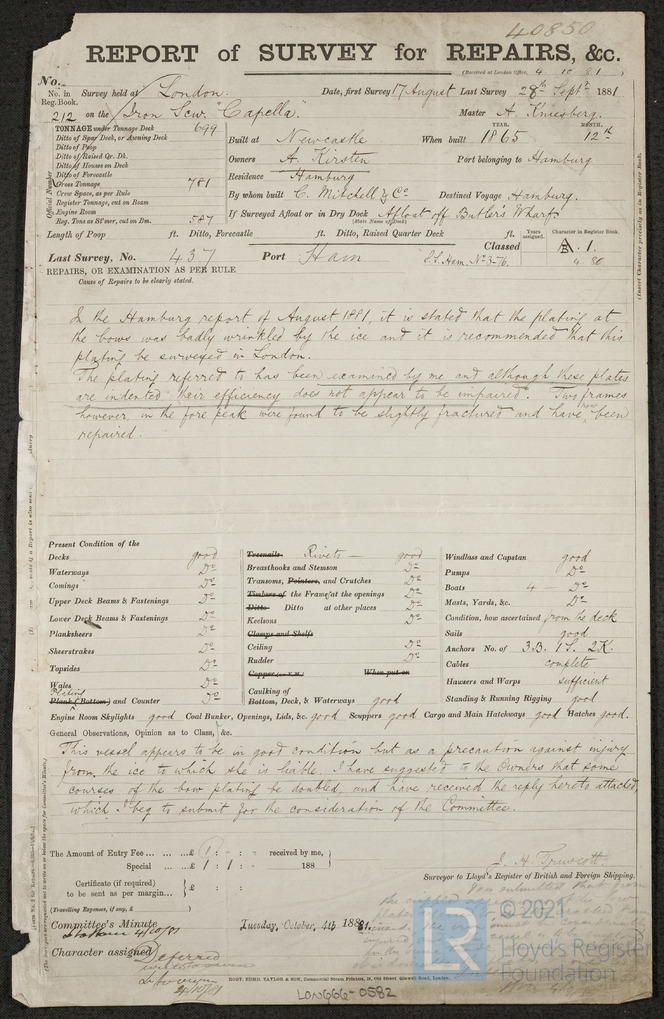 40850
REPORT of SURVEY for REPAIRS, &c.
(Received at London Office, 4. 10 81)
No.
No. in Reg. Book. Survey held at London. Date, first Survey 17 August Last Survey 28th Septr 1881
212 on the Iron Scw. "Capella" Master A. Kniesberg.
TONNAGE under Tonnage Deck 699
Ditto of Spar Deck, or Awning Deck
Ditto of Poop
Ditto of Raised Qr. Dk.
Ditto of Houses on Deck
Ditto of Forecastle
Gross Tonnage 781
Crew Space, as per Rule
Register Tonnage, cut on Beam
Engine Room
Reg. Tons as St'mer, cut on Dm. 587
Official Number
Built at Newcastle When built YEAR. 1865 MONTH. 12th
Owners A. Kirsten Port belonging to Hamburg
Residence Hamburg
By whom built C. Mitchell & Co Destined Voyage Hamburg.
If Surveyed Afloat or in Dry Dock Afloat off Butler's Wharf
(State Name of Dock)
Length of Poop ft. Ditto, Forecastle ft. Ditto, Raised Quarter Deck ft.
Years assigned. Character in Register Book.
Last Survey, No. 437 Port Ham Classed A. 1.
S.S. Ham. No. 3-76. 4. 80
REPAIRS, OR EXAMINATION AS PER RULE
Cause of Repairs to be clearly stated.
In the Hamburg report of August 1881, it is stated that the plating at
the bows was badly wrinkled by the ice and it is recommended that this
plating be surveyed in London.
The plating referred to has been examined by me and although these plates
are indented their efficiency does not appear to be impaired. Two frames
however, in the fore peak were found to be slightly fractured and have now been
repaired.
Present Condition of the
Decks good
Waterways Do
Comings Do
Upper Deck Beams & Fastenings Do
Lower Deck Beams & Fastenings Do
Planksheers Do
Sheerstrakes Do
Topsides Do
Wales Do
Plating
Plank (Bottom) and Counter Do
Treenails Rivets — good
Breasthooks and Stemson Do
Transoms, Pointers, and Crutches Do
Timbers of the Frame at the openings Do
Ditto Ditto at other places Do
Keelsons Do
Clamps and Shelfs
Ceiling Do
Rudder Do
Copper (or Y.M.) When put on
Caulking of
Bottom, Deck, & Waterways good
Windlass and Capstan good
Pumps Do
Boats 4 — Do
Masts, Yards, &c. Do
Condition, how ascertained from the deck
Sails good
Anchors No. of 3.B. 1S. 2K.
Cables complete
Hawsers and Warps sufficient
Standing & Running Rigging good
Engine Room Skylights good Coal Bunker, Openings, Lids, &c. good Scuppers good Cargo and Main Hatchways good Hatches good.
General Observations, Opinion as to Class, &c.
This vessel appears to be in good condition but as a precaution against injury
from the ice to which she is liable, I have suggested to the Owners that some
courses of the bow plating be doubled, and have received the reply hereto attached,
which I beg to submit for the consideration of the Committee.
The Amount of Entry Fee ... ... £ : : received by me,
Special ... ... £ 1 : 1 : - 188
Certificate (if required) to be sent as per margin... £ : :
(Travelling Expenses, if any, £ )
Surveyor to Lloyd's Register of British and Foreign Shipping.
Committee's Minute Tuesday, October, 4th 1881.
Character assigned Deferred
ROBT. EDMD. TAYLOR & SON, Commercial Steam Printers, 19, Old Street, Goswell Road, London.
LON666-0582
LR
© 2021
Lloyd's Register
Foundation